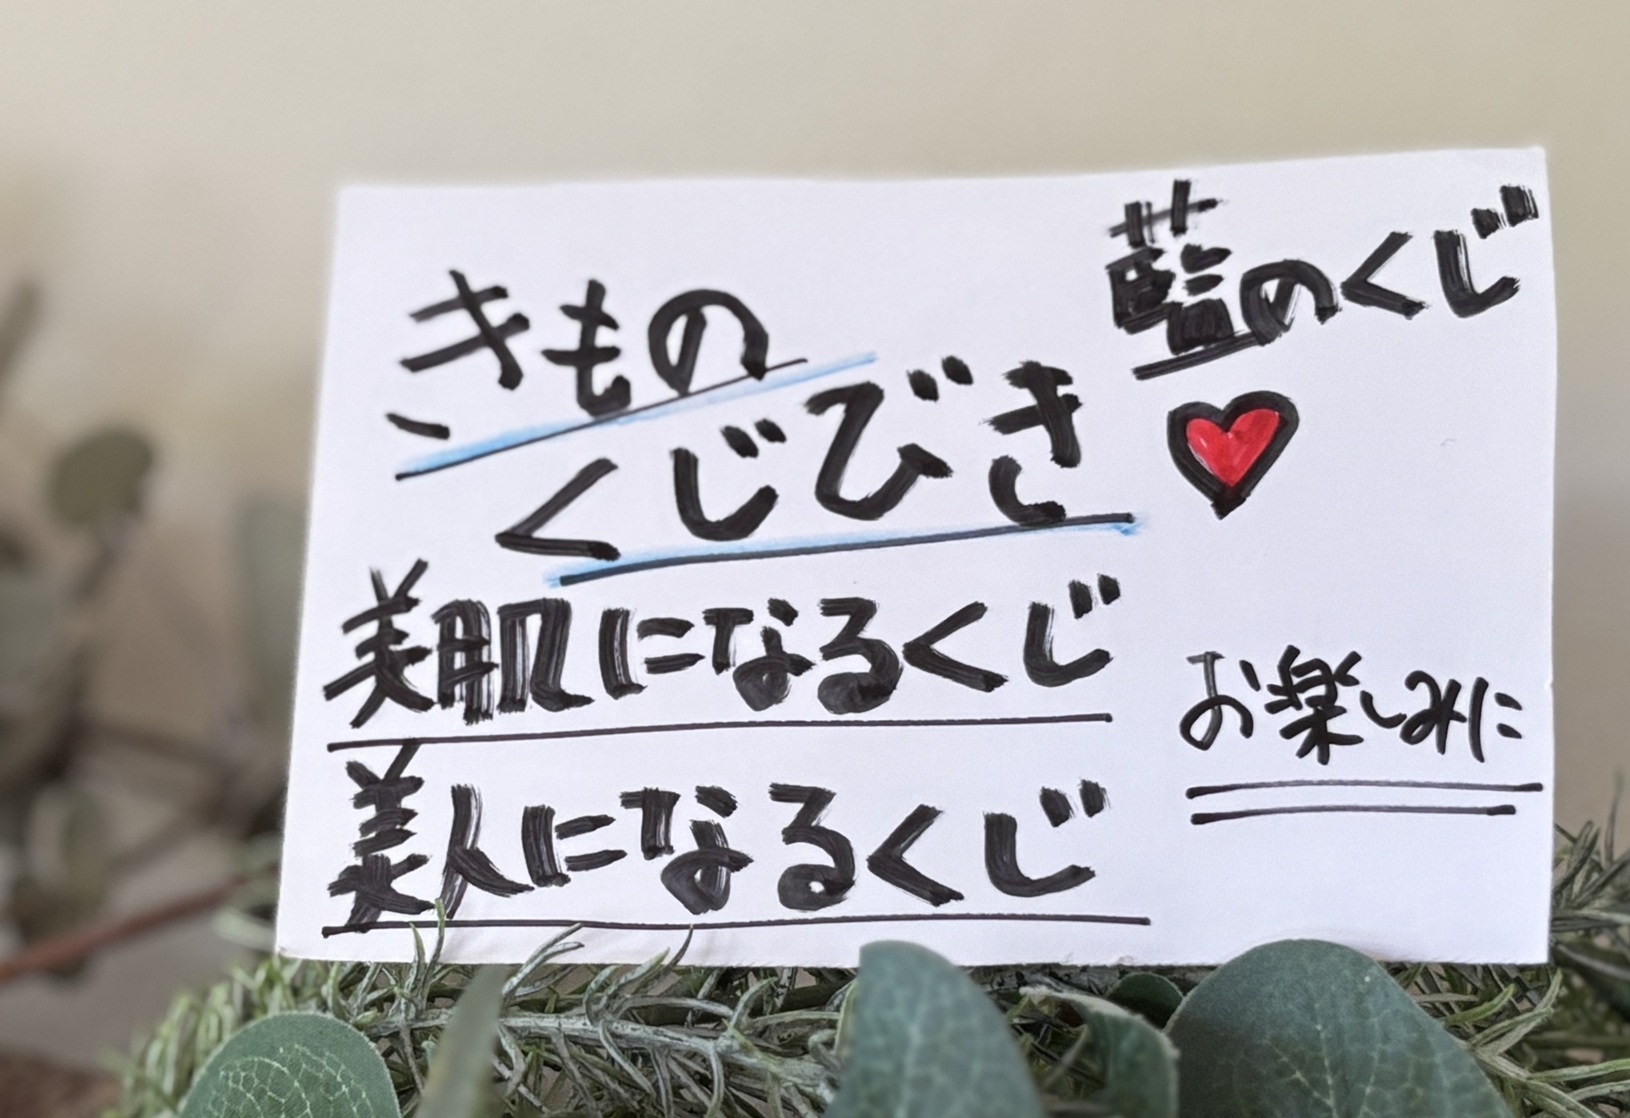 きもの
くじびき
藍のくじ
美肌になるくじ
美人になるくじ
お楽しみに